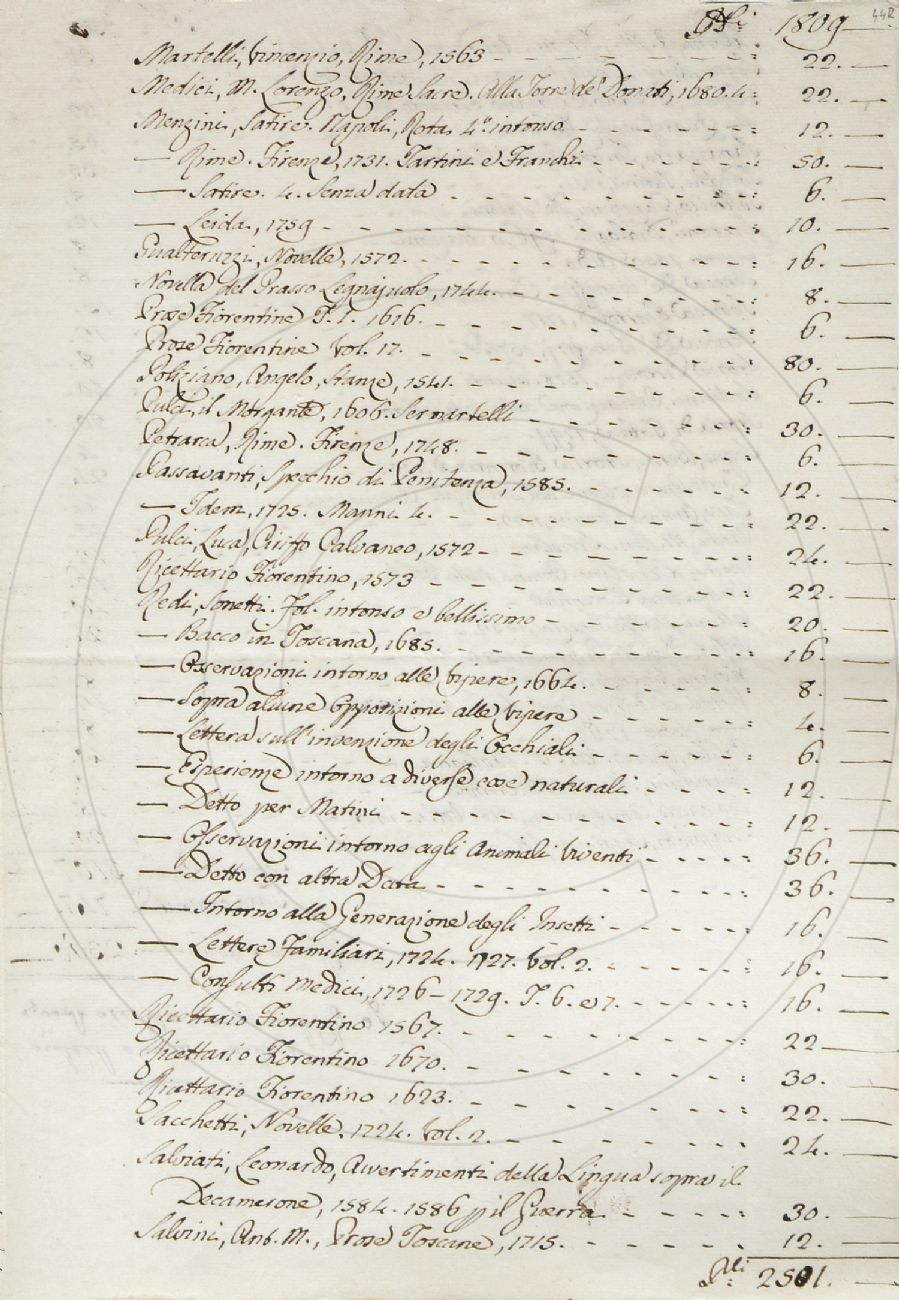 442
Pli 1809 —
Martelli, Vincenzio, Rime, 1563 - - - : 22. —
Medici, M. Lorenzo, Rime Sacre. Alla Torre de' Donati, 1680. 4: 22. —
Menzini, Satire. Napoli, Rota 4.º intonso - - - : 12. —
— Rime. Firenze, 1731. Tartini e Franchi - - - : 50. —
— Satire. 4. Senza data - - - : 6. —
— Leida, 1759 - - - : 10. —
Gualteruzzi, Novelle, 1572. - - - : 16. —
Novella del Grasso Legnajuolo, 1744. - - - : 8. —
Prose Fiorentine T. 1. 1616. - - - : 6. —
Prose Fiorentine Vol. 17. - - - : 80. —
Poliziano, Angelo, Stanze, 1541. - - - : 6. —
Pulci, il Morgante, 1606. Sermartelli - - - : 30. —
Petrarca, Rime. Firenze, 1748. - - - : 6. —
Passavanti, Specchio di Penitenza, 1585. - - - : 12. —
— Idem, 1725. Manni 4. - - - : 22. —
Pulci, Luca, Ciriffo Calvaneo, 1572 - - - : 24. —
Ricettario Fiorentino, 1573 - - - : 22. —
Redi, Sonetti. Fol. intonso e bellissimo - - - : 20. —
— Bacco in Toscana, 1685. - - - : 16. —
— Osservazioni intorno alle Vipere, 1664. - - - : 8. —
— Sopra alcune Opposizioni alle Vipere - - - : 4. —
— Lettera sull'invenzione degli Occhiali - - - : 6. —
— Esperienze intorno a diverse cose naturali - - - : 12. —
— Detto per Matini - - - : 12. —
— Osservazioni intorno agli Animali Viventi - - - : 36. —
— Detto con altra Data - - - : 36. —
— Intorno alla Generazione degli Insetti - - - : 16. —
— Lettere Familiari, 1724. 1727. Vol. 2. - - - : 16. —
— Consulti Medici, 1726 - 1729. T. 6. e 7. - - - : 16. —
Ricettario Fiorentino 1567. - - - : 22 —
Ricettario Fiorentino 1670. - - - : 30. —
Ricettario Fiorentino 1623. - - - : 22. —
Sacchetti, Novelle. 1724. Vol. 2. - - - : 24. —
Salviati, Leonardo, Avvertimenti della Lingua sopra il
Decamerone, 1584. 1586 il Guerra - - - : 30. —
Salvini, Ant. M., Prose Toscane, 1715. - - - : 12. —
Pli: 2501. —